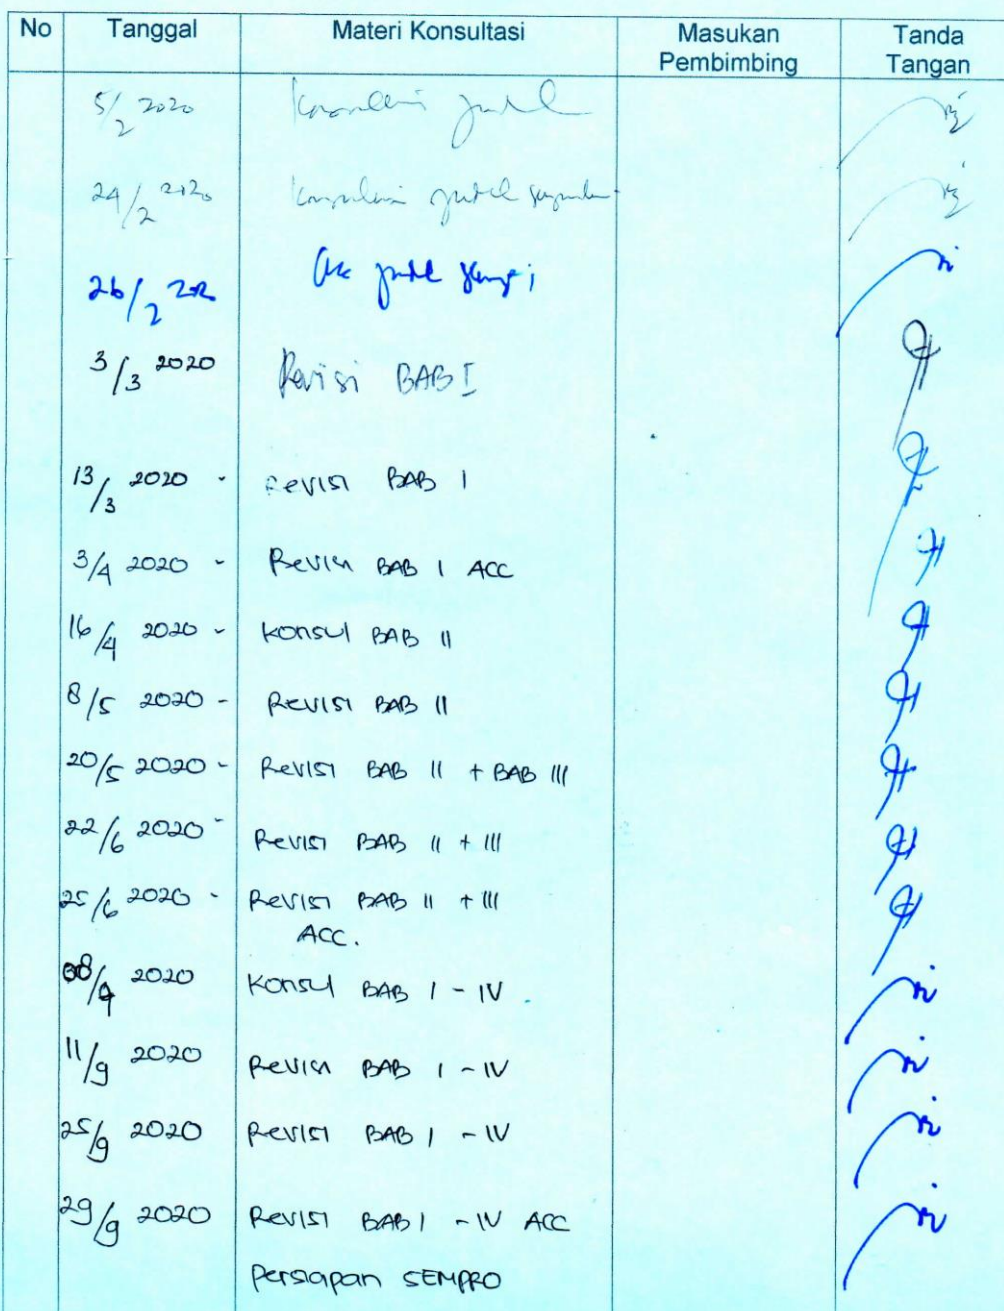 No Tanggal Materi Konsultasi Masukan Pembimbing Tanda Tangan
5/2 2020 judul
24/2 2020 judul
26/2 202 judul
3/3 2020 Revisi BAB I
13/3 2020 - Revisi BAB I
3/4 2020 - Revisi BAB I ACC
16/4 2020 - Konsul BAB II
8/5 2020 - Revisi BAB II
20/5 2020 - Revisi BAB II + BAB III
22/6 2020 - Revisi BAB II + III
25/6 2020 - Revisi BAB II + III
ACC.
08/9 2020 Konsul BAB I - IV
11/9 2020 Revisi BAB I - IV
25/9 2020 Revisi BAB I - IV
29/9 2020 Revisi BAB I - IV ACC
Persiapan SEMPRO